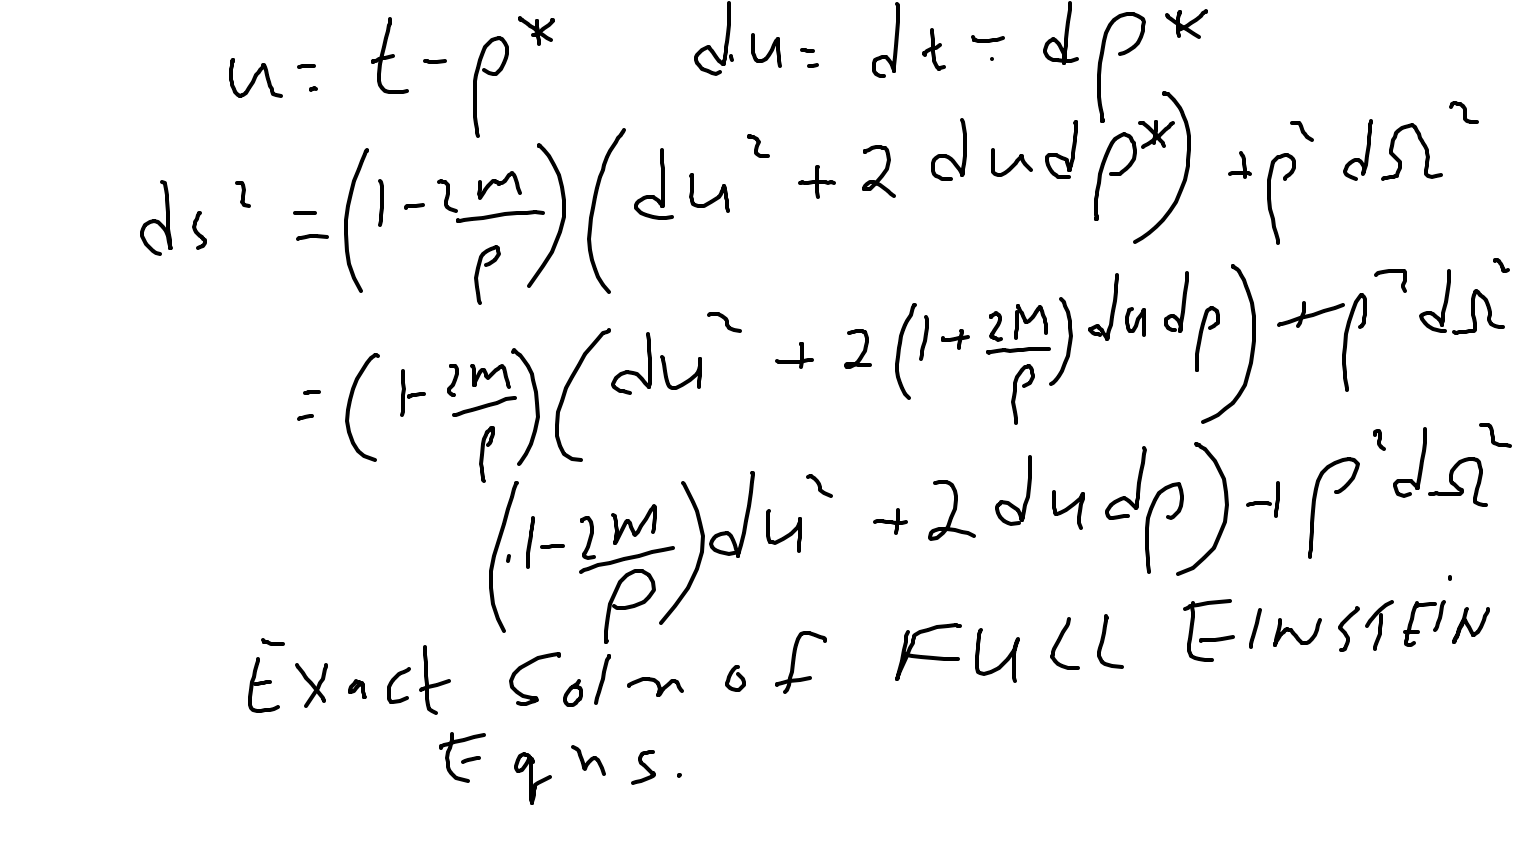 u = t - ρ* du = dt - dρ*
ds² = (1 - 2m/ρ)(du² + 2 du dρ*) + ρ² dΩ²
= (1 - 2m/ρ)(du² + 2(1 + 2M/ρ) du dρ) + ρ² dΩ²
(1 - 2m/ρ) du² + 2 du dρ) + ρ² dΩ²
Exact Soln of FULL EINSTEIN
Eqns.